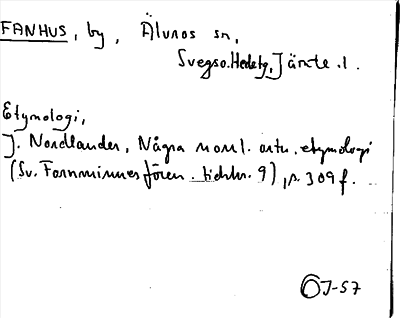 FANHUS, by, Älvros sn,
Svegs o. Hedetg, Jämtl.
Etymologi,
J. Nordlander, Några norrl. ortn. etymologi
(Sv. Fornminnesfören. tidskr. 9), s. 309 f.
OJ-57